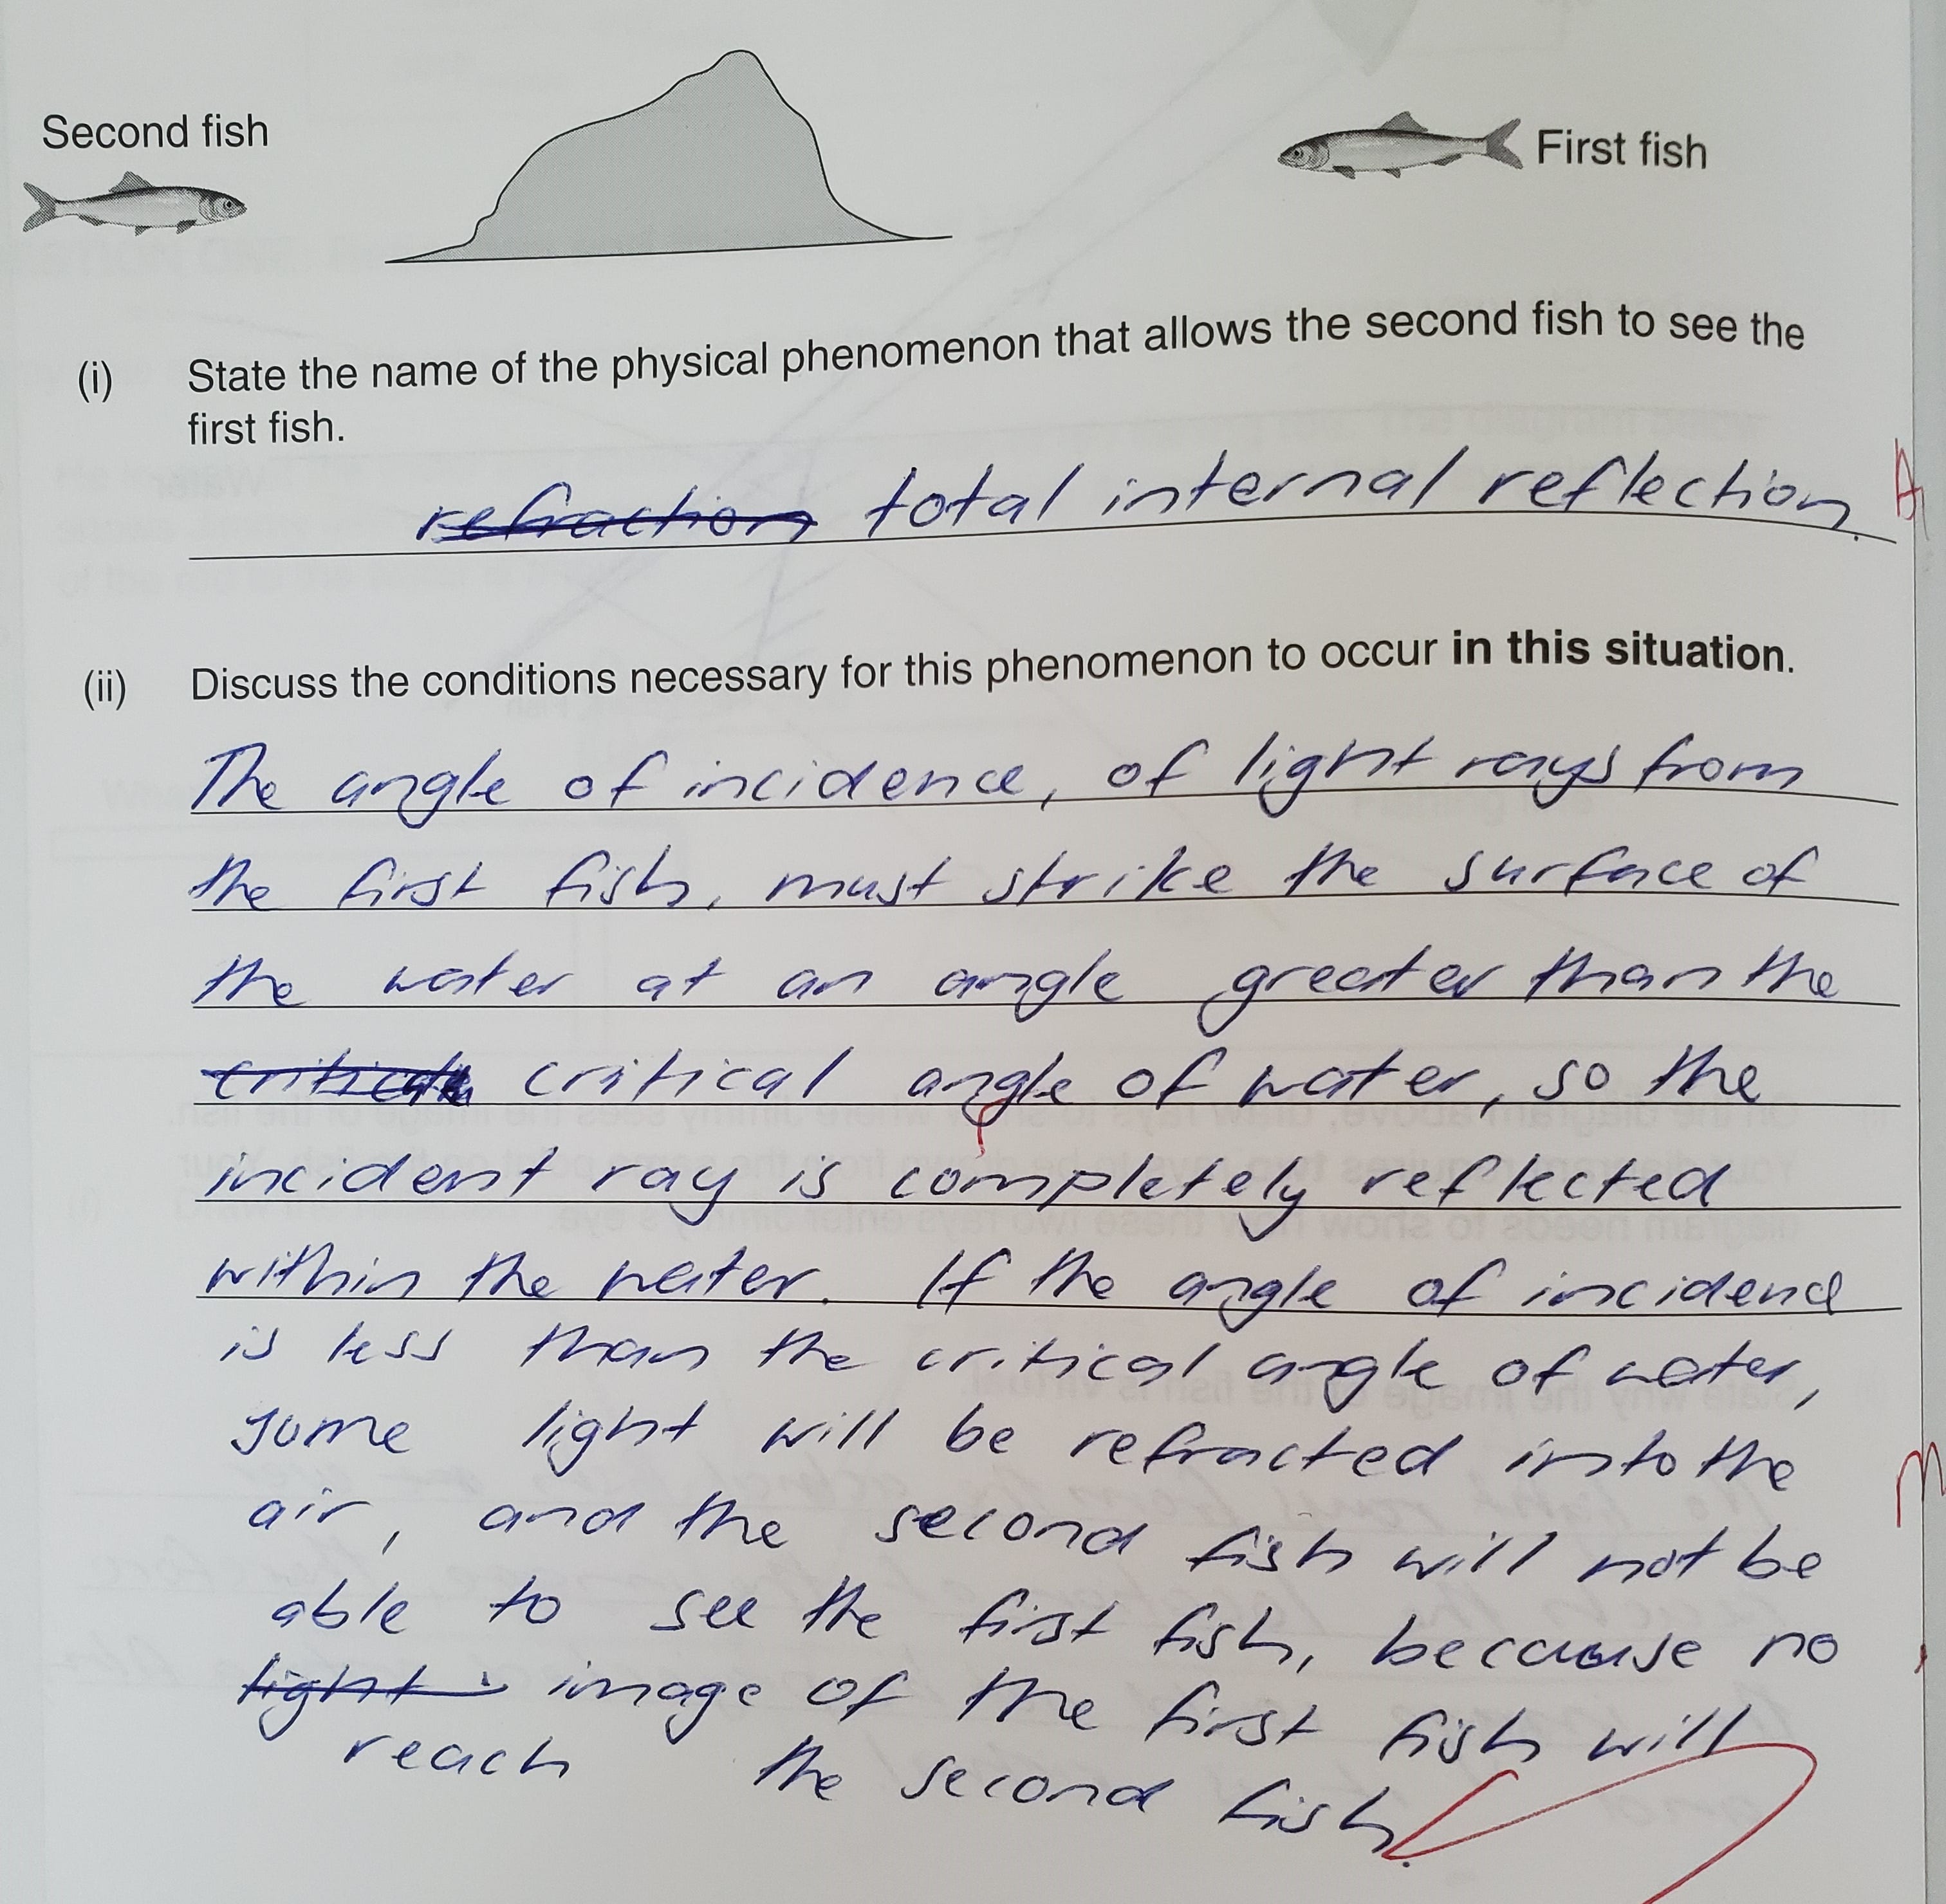 Second fish
First fish
(i) State the name of the physical phenomenon that allows the second fish to see the
first fish.
refraction total internal reflection.
A
(ii) Discuss the conditions necessary for this phenomenon to occur in this situation.
The angle of incidence, of light rays from
the first fish, must strike the surface of
the water at an angle greater than the
critical angle of water, so the
incident ray is completely reflected
within the water. If the angle of incidence
is less than the critical angle of water,
some light will be refracted into the
m
air, and the second fish will not be
able to see the first fish, because no
light image of the first fish will
reach the second fish.